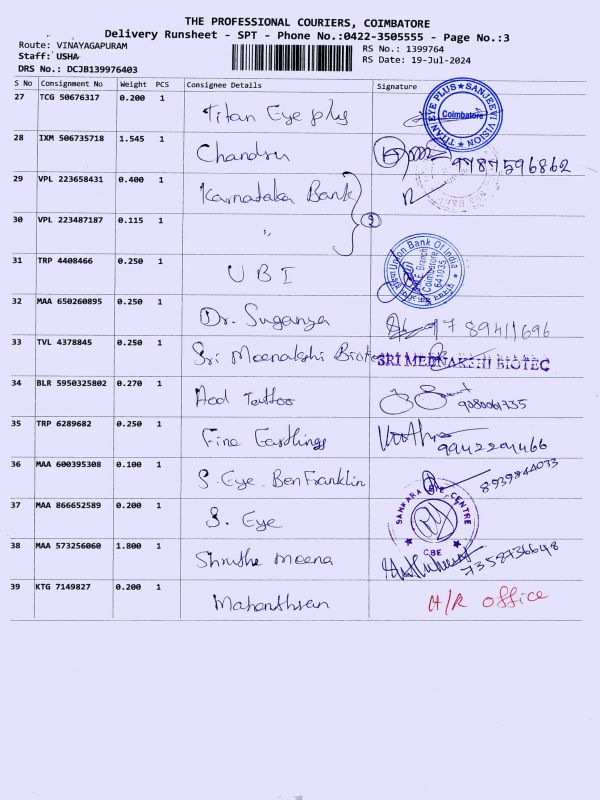 THE PROFESSIONAL COURIERS, COIMBATORE
Delivery Runsheet - SPT - Phone No.:0422-3505555 - Page No.:3
Route: VINAYAGAPURAM
RS No.: 1399764
Staff: USHA
RS Date: 19-Jul-2024
DRS No.: DCJB139976403
S No Consignment No Weight PCS Consignee Details Signature
27 TCG 50676317 0.200 1 Titan Eye plus
TITAN EYE PLUS ★ SANJEEVI VISION ★ Coimbatore
28 IXM 506735718 1.545 1 Chandru 9787596862
29 VPL 223658431 0.400 1 Karnataka Bank
30 VPL 223487187 0.115 1 " 2
31 TRP 4408466 0.250 1 UBI
Union Bank Of India Branch Coimbatore 641035
32 MAA 650260895 0.250 1 Dr. Suganya 789411696
33 TVL 4378845 0.250 1 Sri Meenakshi Biotec SRI MEENAKSHI BIOTEC
34 BLR 5950325802 0.270 1 Aod Tattoo
35 TRP 6289682 0.250 1 Fine Earthings 9942291466
36 MAA 600395308 0.100 1 S. Eye - Ben Franklin 8939844033
37 MAA 866652589 0.200 1 S. Eye
SANKARA EYE CENTRE ★ CBE ★
38 MAA 573256060 1.800 1 Shruthe meena 7358736648
39 KTG 7149827 0.200 1 H/R office